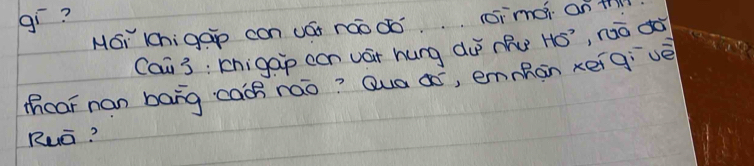 gì?
Mỗi khi gặp con vật nào đó ... rồi mới ăn thịt.
Câu 3: Khi gặp con vật hung dữ như Hổ, rùa đã
thoát nạn bằng cách nào? Qua đó, em nhận xét gì về
Rùa?